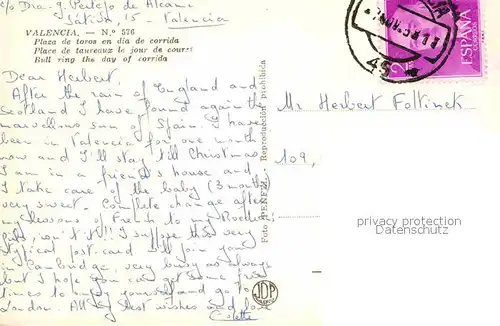 c/o Dra. J. Pertejo de Alcami
Játiva, 15 - Valencia
VALENCIA. — N.º 876
Plaza de toros en día de corrida
Place de taureaux le jour de course
Bull ring the day of corrida
Dear Herbert,
After the rain of England and
Scotland I have found again the
marvellous sun of Spain. I have
been in Valencia for one month
now and I'll stay till Christmas
I am in a friend's house and
I take care of the baby (3 months)
very sweet. Complete change after
my lessons of French to my
girls, isn't it!! I suppose this very
typical post-card will join you
in Cambridge, very busy as always
but I hope you can get some free
times to enjoy yourself and go to
London. All my best wishes and love
Colette
Foto PENELL - Reproducción prohibida
JDP
ESPAÑA
Mr Herbert Foltinek
109,
privacy protection
Datenschutz